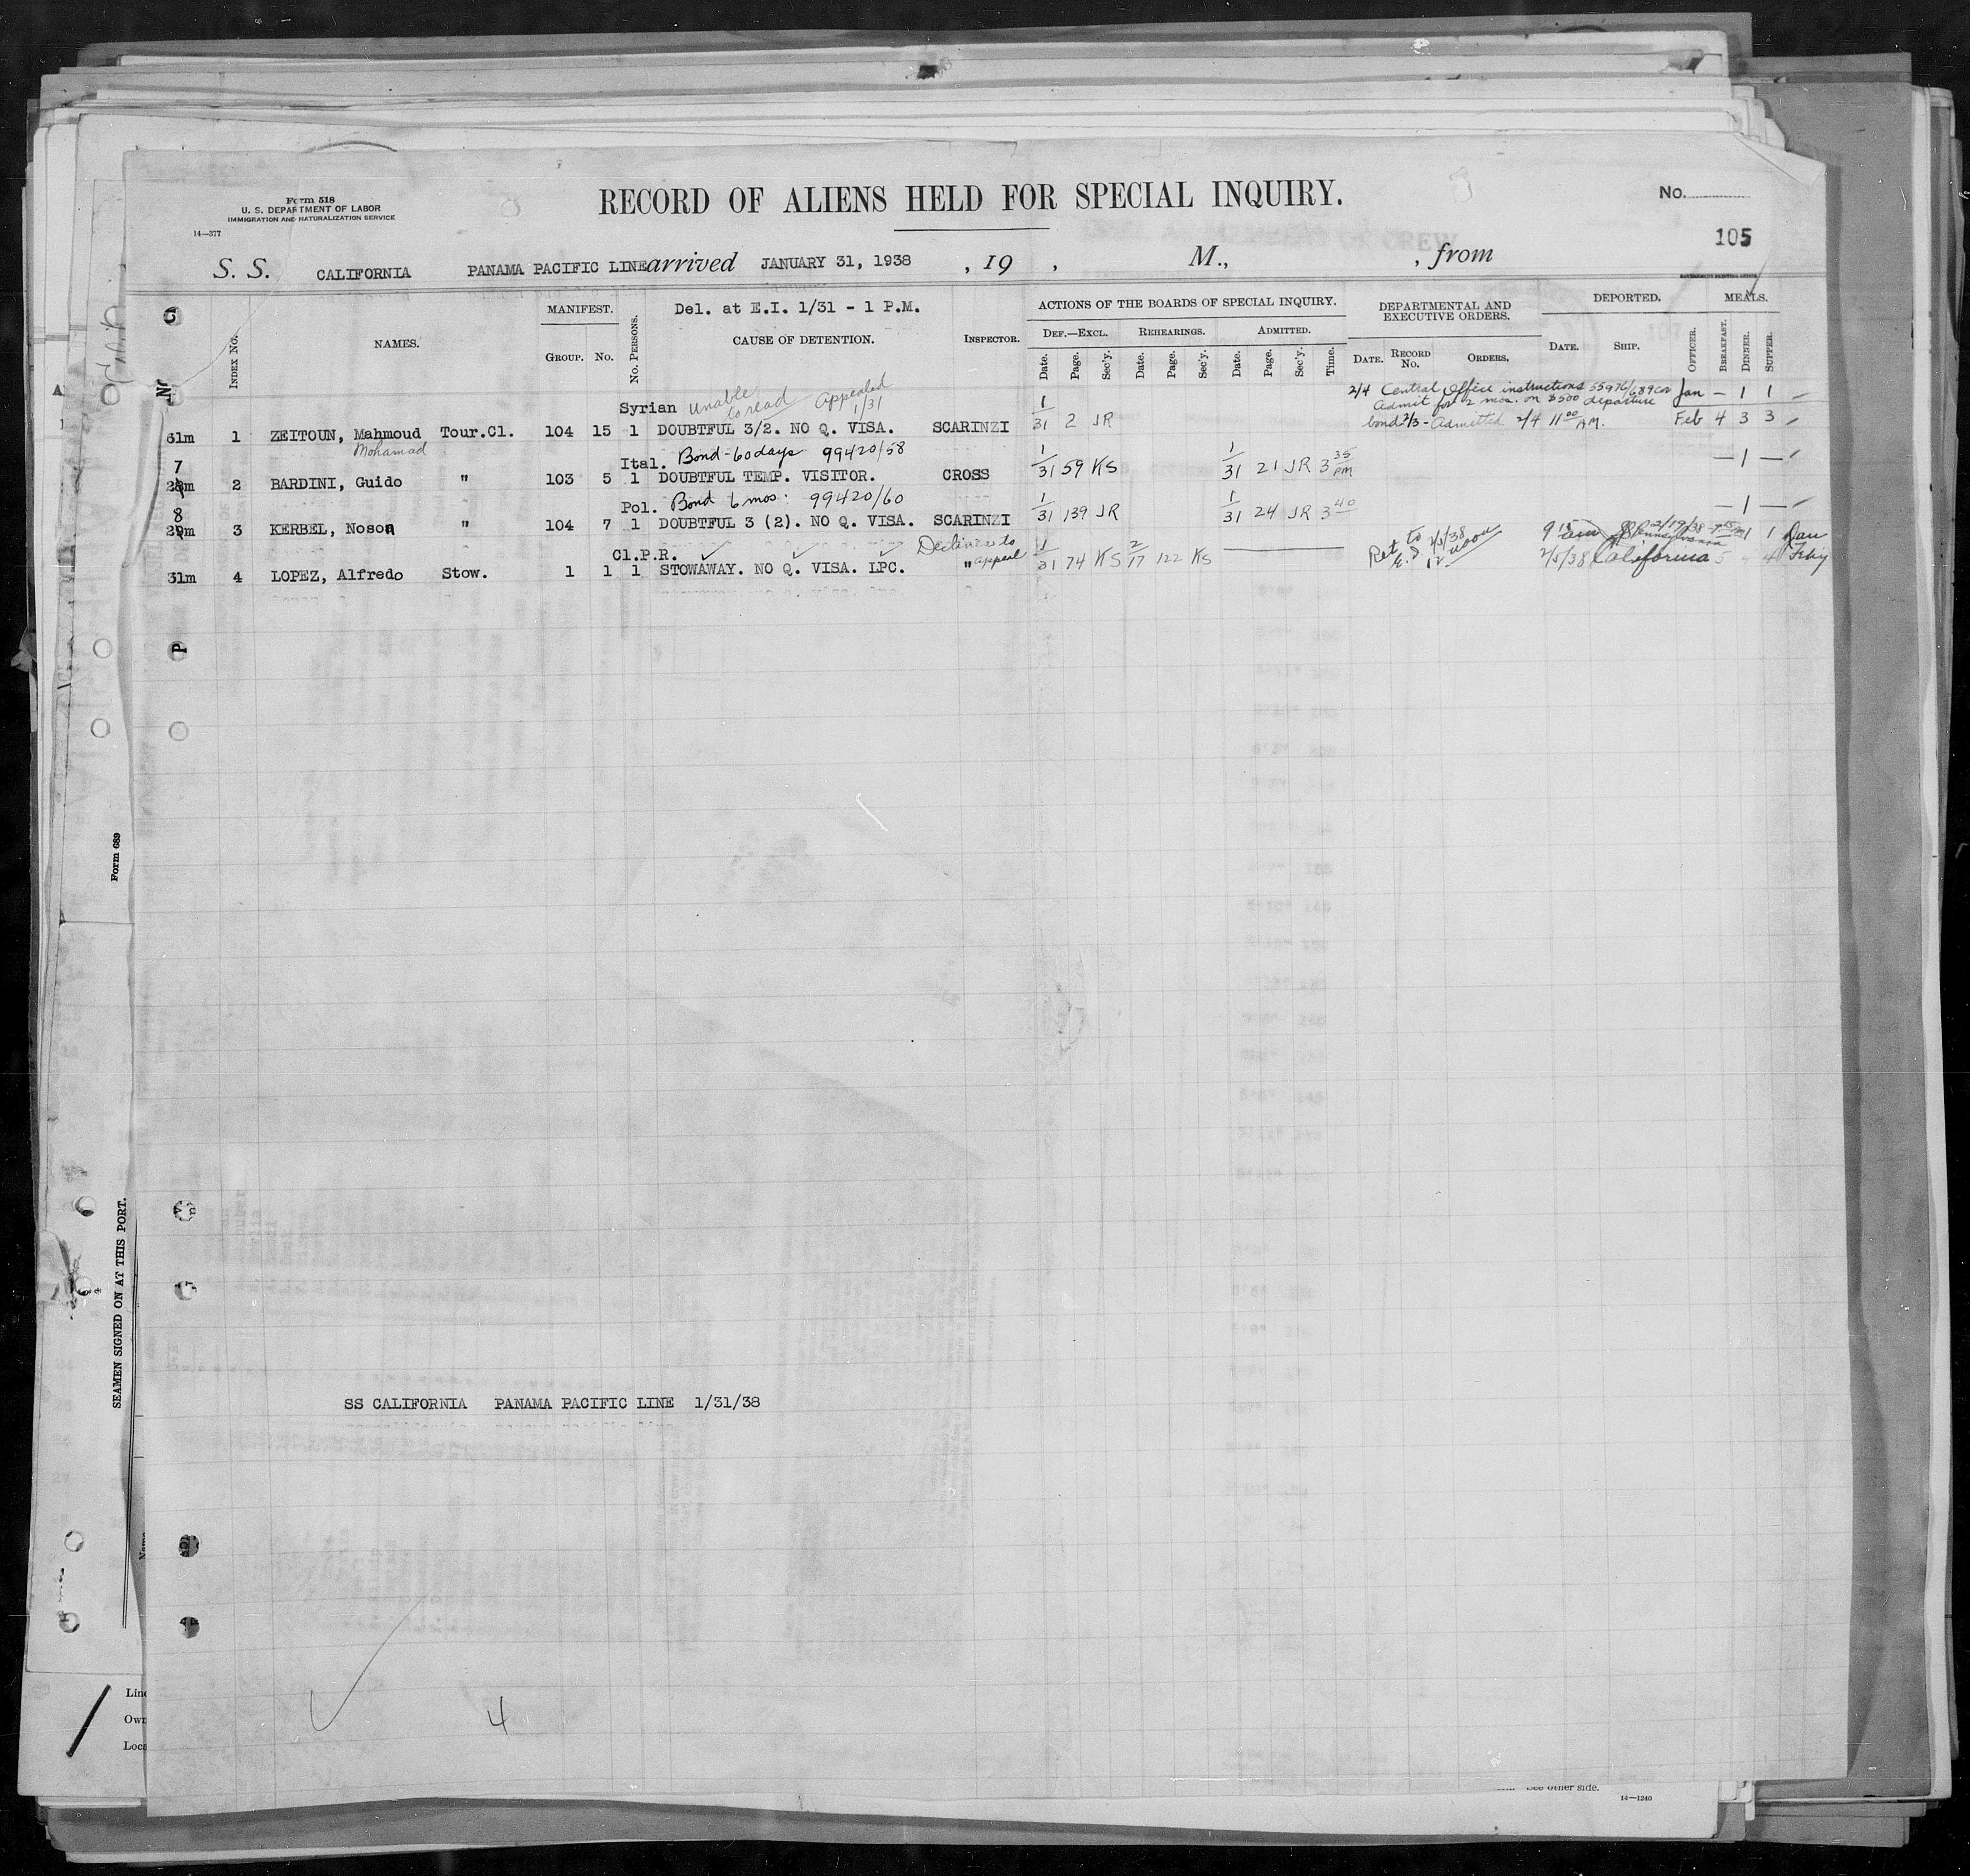 Form 518
U. S. DEPARTMENT OF LABOR
IMMIGRATION AND NATURALIZATION SERVICE
14—377
RECORD OF ALIENS HELD FOR SPECIAL INQUIRY.
No.
105
S. S. CALIFORNIA PANAMA PACIFIC LINE arrived JANUARY 31, 1938 , 19 , M., , from
INDEX No.
NAMES.
MANIFEST.
GROUP. No.
No. PERSONS.
Del. at E.I. 1/31 - 1 P.M.
CAUSE OF DETENTION.
INSPECTOR.
ACTIONS OF THE BOARDS OF SPECIAL INQUIRY.
DEF.—EXCL. REHEARINGS. ADMITTED.
Date. Page. Sec'y. Date. Page. Sec'y. Date. Page. Sec'y. Time.
DEPARTMENTAL AND
EXECUTIVE ORDERS.
DATE. RECORD No. ORDERS.
DEPORTED.
DATE. SHIP.
OFFICER.
MEALS.
BREAKFAST. DINNER. SUPPER.
Syrian Unable to read Appealed 1/31
2/4 Central Office instructions 55976/689
Admit for 2 mos. on $500 departure
bond 2/3 - Admitted 2/4 11 00 AM.
Jan — 1 1
Feb 4 3 3
31m 1 ZEITOUN, Mahmoud Tour.Cl. 104 15 1 DOUBTFUL 3/2. NO Q. VISA. SCARINZI 1/31 2 JR
Mohamad
Ital. Bond - 60 days 99420/58
7
28m 2 BARDINI, Guido " 103 5 1 DOUBTFUL TEMP. VISITOR. CROSS 1/31 59 KS 1/31 21 JR 3 35 PM — 1 —
Pol. Bond 6 mos. 99420/60
8
29m 3 KERBEL, Noson " 104 7 1 DOUBTFUL 3 (2). NO Q. VISA. SCARINZI 1/31 139 JR 1/31 24 JR 3 40 — 1 —
Cl.P.R. Declines to appeal
31m 4 LOPEZ, Alfredo Stow. 1 1 1 STOWAWAY. NO Q. VISA. LPC. " 1/31 74 KS 2/17 122 KS
Ret to E.I. 2/5/38 12 noon
2/19/38 Pennsylvania
2/5/38 California
SS CALIFORNIA PANAMA PACIFIC LINE 1/31/38
4
Form 689
SEAMEN SIGNED ON AT THIS PORT.
Name
Line
Own
Loca
See other side.
14—1240